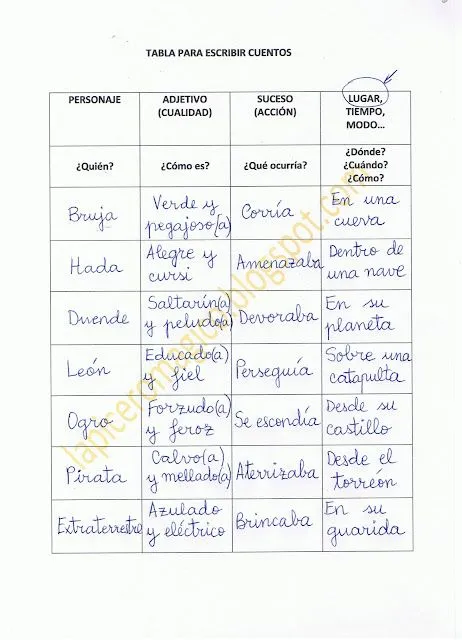 TABLA PARA ESCRIBIR CUENTOS
PERSONAJE
ADJETIVO
(CUALIDAD)
SUCESO
(ACCIÓN)
LUGAR,
TIEMPO,
MODO...
¿Quién?
¿Cómo es?
¿Qué ocurría?
¿Dónde?
¿Cuándo?
¿Cómo?
Bruja
Verde y
pegajoso(a)
Corría
En una
cueva
Hada
Alegre y
cursi
Amenazaba
Dentro de
una nave
Duende
Saltarín(a)
y peludo(a)
Devoraba
En su
planeta
León
Educado(a)
y fiel
Perseguía
Sobre una
catapulta
Ogro
Forzudo(a)
y feroz
Se escondía
Desde su
castillo
Pirata
Calvo(a)
y mellado(a)
Aterrizaba
Desde el
torreón
Extraterrestre
Azulado
y eléctrico
Brincaba
En su
guarida
lapiceromagico.blogspot.com